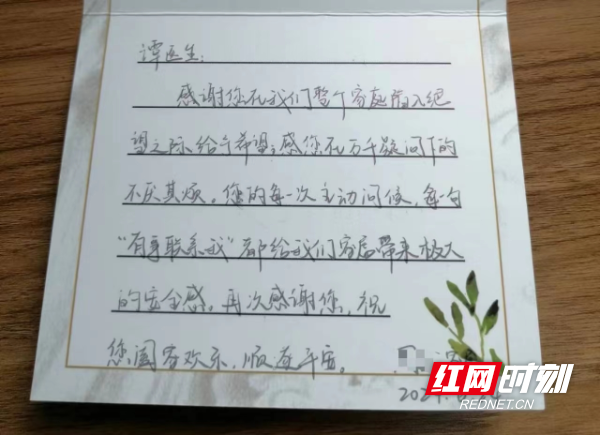 谭医生：
感谢您在我们整个家庭陷入绝
望之际给予希望；感您在万千疑问下的
不厌其烦。您的每一次主动问候，每一句
“有事联系我”都给我们家属带来极大
的安全感。再次感谢您，祝
您阖家欢乐，顺遂平安。
202
红网时刻
REDNET.CN